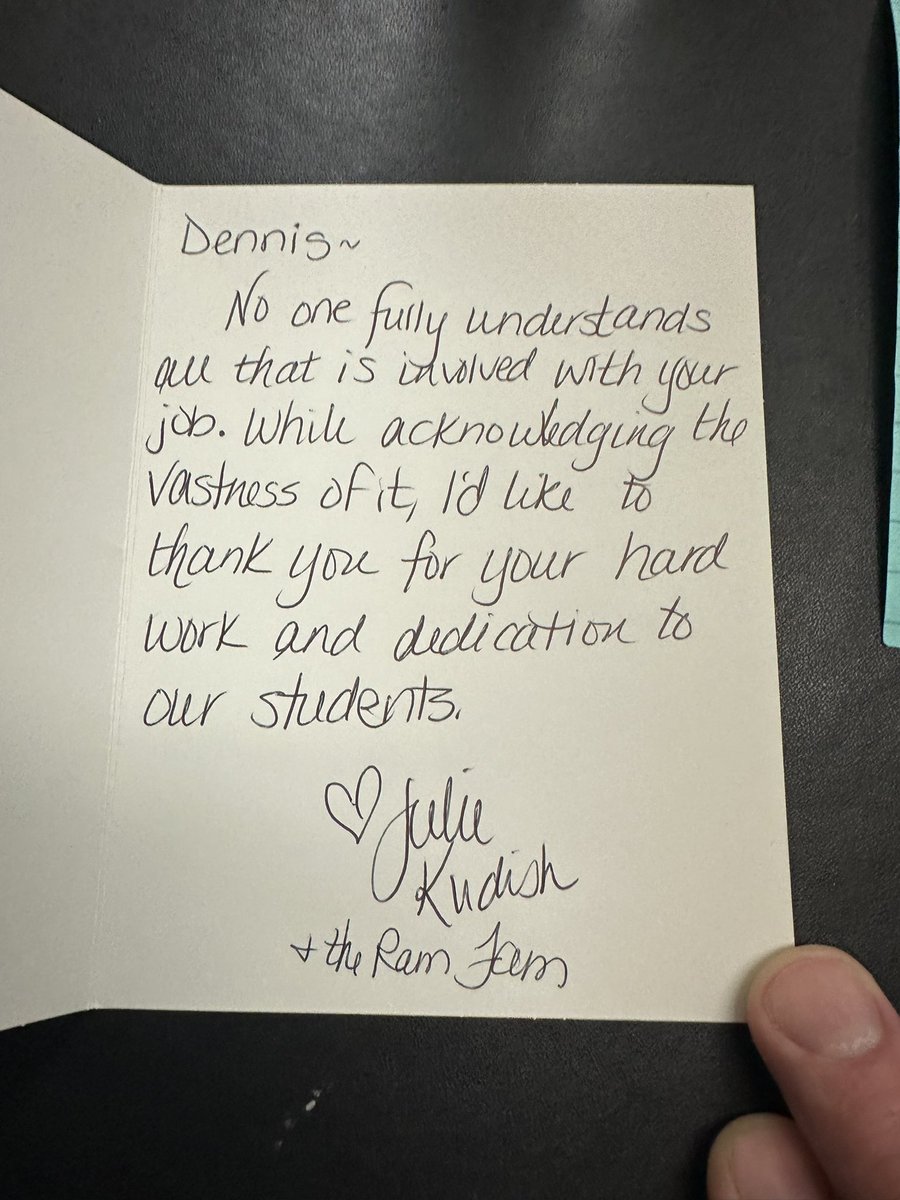 Dennis~
No one fully understands
all that is involved with your
job. While acknowledging the
vastness of it, I'd like to
thank you for your hard
work and dedication to
our students.
♡ Julie
Kudish
+ the Ram Fam